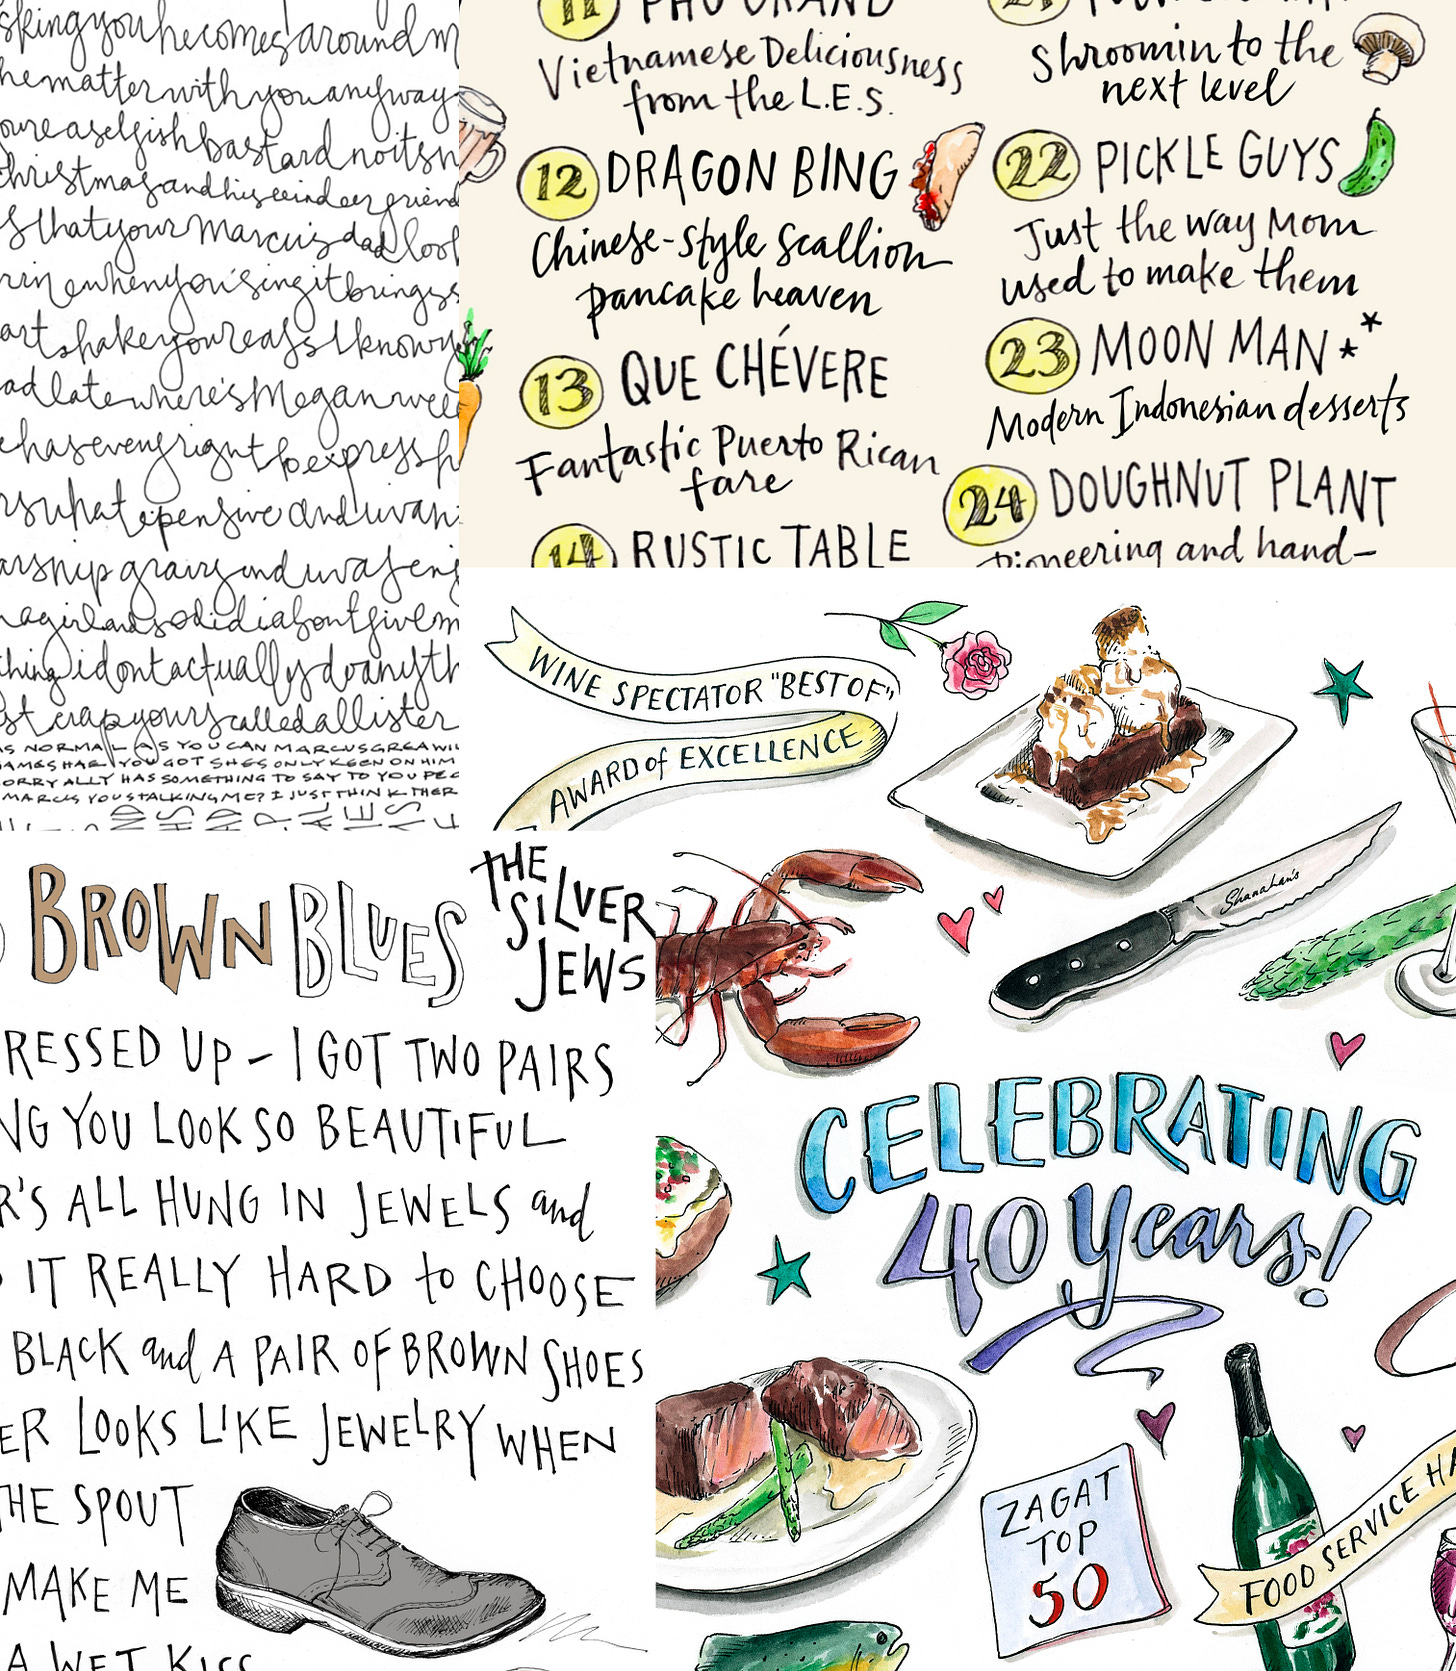 skingyouhecomesaroundm
hematterwithyouanyway
youreaselfishbastardnoitsn
christmasandhisreindeerfriend
sthatyourmarcusdadloo
whenyousingitbrings
artshakeyourassIknow
adlatewhere'sMeganwee
ehaseveryrighttoexpressh
rswhatepensiveandiwan
arshipgravyandiwaseng
nagirlandsodidiabontgivem
thingidontactuallydoanyth
stcrapyourscalledallister
AS NORMAL AS YOU CAN MARCUSGREAWIL
JAMESHAE YOU GOT SHES ONLY KEEN ON HIM
ORRY ALLY HAS SOMETHING TO SAY TO YOU PEC
MARCUS YOU STALKING ME? I JUST THINK K THER
11 PHO GRAND
Vietnamese Deliciousness
from the L.E.S.
12 DRAGON BING
Chinese-style scallion
pancake heaven
13 QUE CHÉVERE
Fantastic Puerto Rican
fare
14 RUSTIC TABLE
21
Shroomin to the
next level
22 PICKLE GUYS
Just the way Mom
used to make them
23 MOON MAN
Modern Indonesian desserts
24 DOUGHNUT PLANT
Pioneering and hand-
WINE SPECTATOR "BEST OF"
AWARD of EXCELLENCE
Shanahan's
CELEBRATING
40 Years!
ZAGAT
TOP
50
FOOD SERVICE HA
BROWN BLUES
THE
SILVER
JEWS
RESSED UP - I GOT TWO PAIRS
NG YOU LOOK SO BEAUTIFUL
R'S ALL HUNG IN JEWELS and
IT REALLY HARD to CHOOSE
BLACK and A PAIR OF BROWN SHOES
ER LOOKS LIKE JEWELRY WHEN
THE SPOUT
MAKE ME
A WET KISS